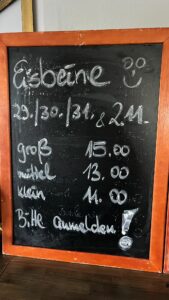 Eisbeine
29./30./31. & 2.11.
groß 15.00
mittel 13.00
klein 11.00
Bitte anmelden!